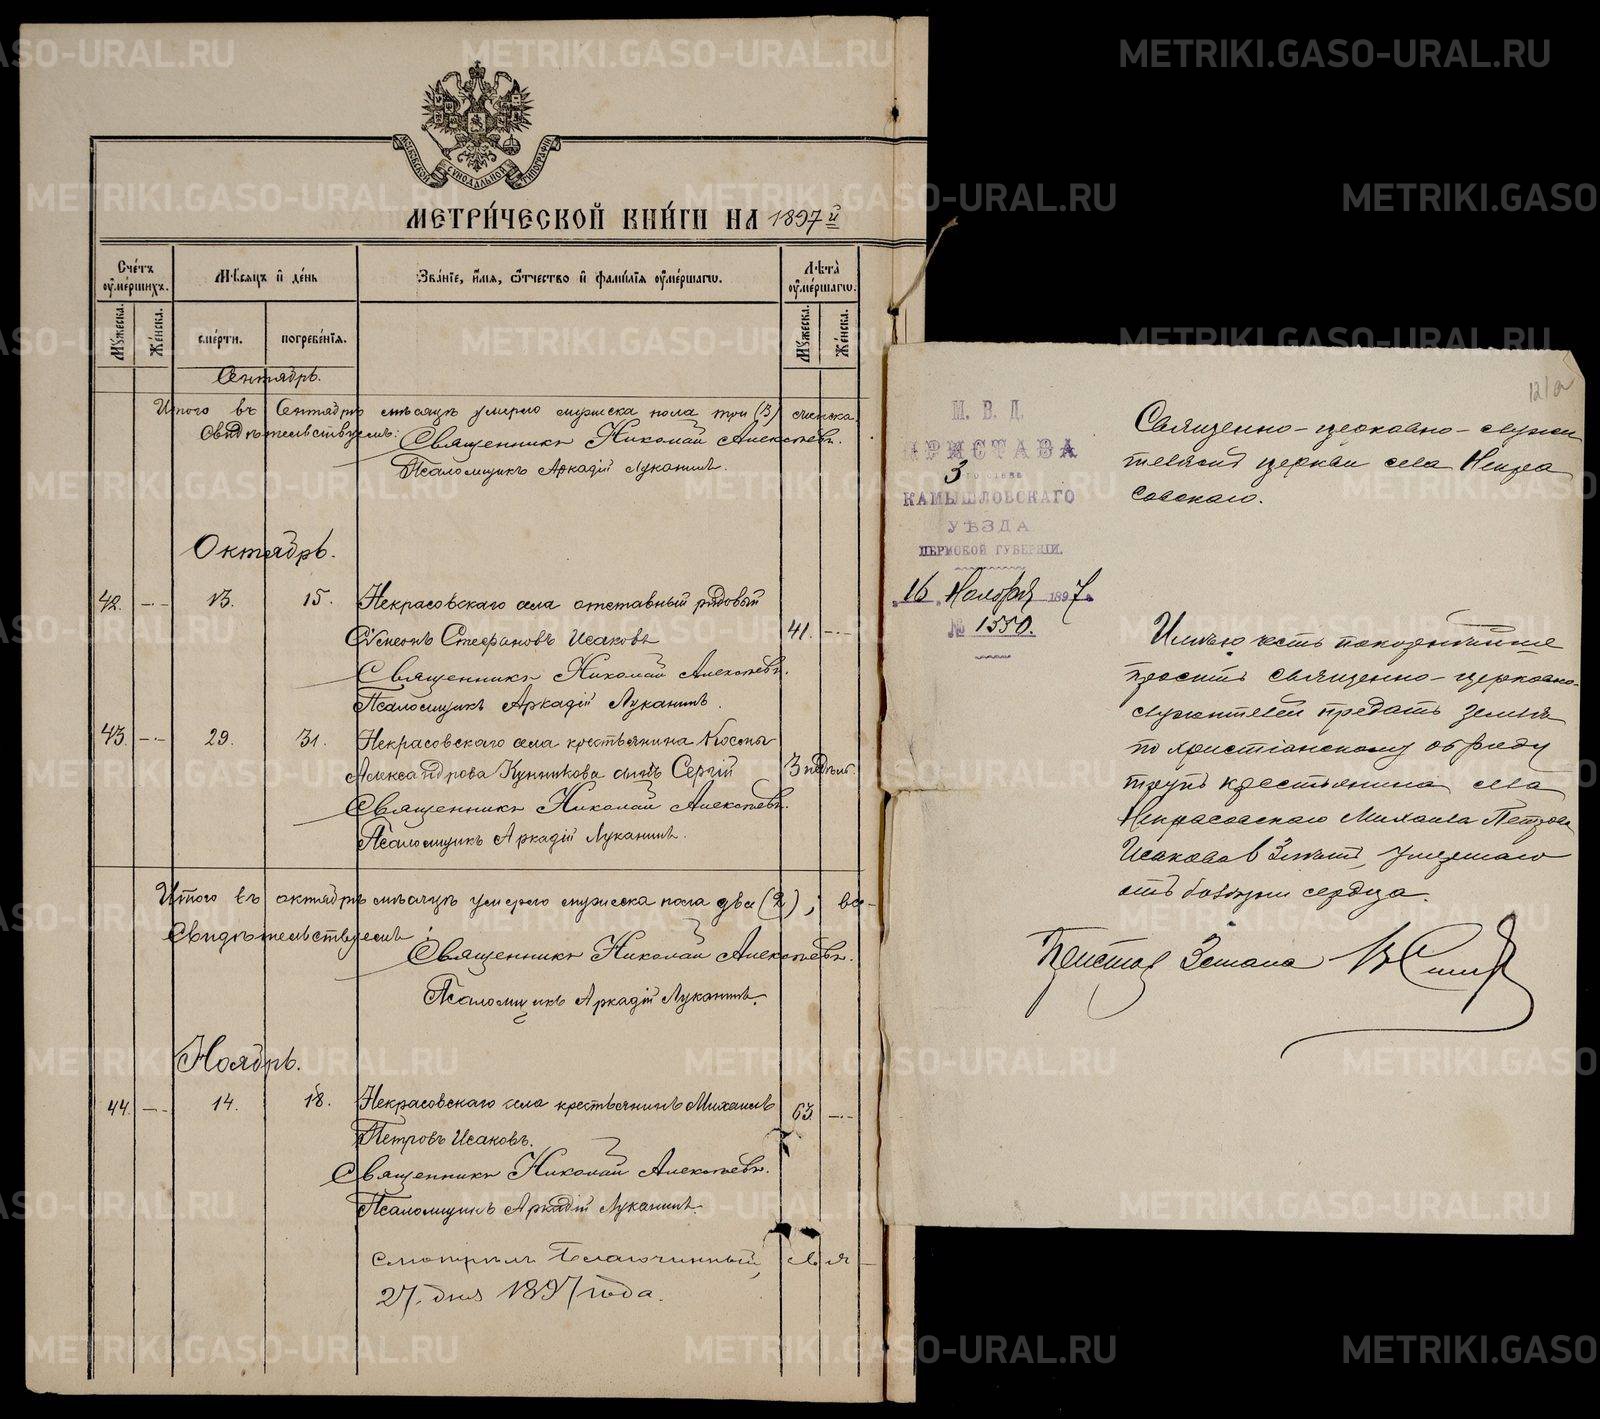 МЕТРИ́ЧЕСКОЙ КНИ́ГИ НА 1897й
Сче́тъ ᲂу҆ме́ршихъ.
Мꙋ́жеска.
Же́нска.
Мѣ́сяцъ и҆ де́нь
сме́рти.
погребе́нїя.
Зва́нїе, и҆́мя, ѻ҆́тчество и҆ фами́лїя ᲂу҆ме́ршагѡ.
Лѣта̀ ᲂу҆ме́ршагѡ.
Мꙋ́жеска.
Же́нска.
Сентябрь.
Итого въ Сентябрѣ мѣсяцѣ умерло мужеска пола три (3) женска
Свидѣтельствуемъ: Священникъ Николай Алексѣевъ.
Псаломщикъ Аркадій Луканинъ.
Октябрь.
42. -·- 13. 15. Некрасовскаго села отставный рядовый
Стефановъ Исаковъ 41. -·-
Священникъ Николай Алексѣевъ.
Псаломщикъ Аркадій Луканинъ.
43. -·- 29. 31. Некрасовскаго села крестьянина Космы
Александрова Кунникова сынъ Сергій 3 недѣль.
Священникъ Николай Алексѣевъ.
Псаломщикъ Аркадій Луканинъ.
Итого въ октябрѣ мѣсяцѣ умерло мужеска пола два (2), все-
Свидѣтельствуемъ:
Священникъ Николай Алексѣевъ.
Псаломщикъ Аркадій Луканинъ.
Ноябрь.
44. -·- 14. 18. Некрасовскаго села крестьянинъ Михаилъ 63 -·-
Петровъ Исаковъ.
Священникъ Николай Алексѣевъ.
Псаломщикъ Аркадій Луканинъ.
Смотрѣлъ Благочинный,
27. дня 1897 года.
М. В. Д.
ПРИСТАВА
3го стана
КАМЫШЛОВСКАГО
УѢЗДА
ПЕРМСКОЙ ГУБЕРНІИ.
„16„ Ноября 1897 г.
№ 1550.
12/а
Священно-церковно-служи
телямъ церкви села Некра
совскаго.
Имѣю честь покорнѣйше
просить священно-церковно-
служителей предать землѣ
по христіанскому обряду
трупъ крестьянина села
Некрасовскаго Михаила Петрова
Исакова, умершаго
отъ болѣзни сердца.
Приставъ 3 стана